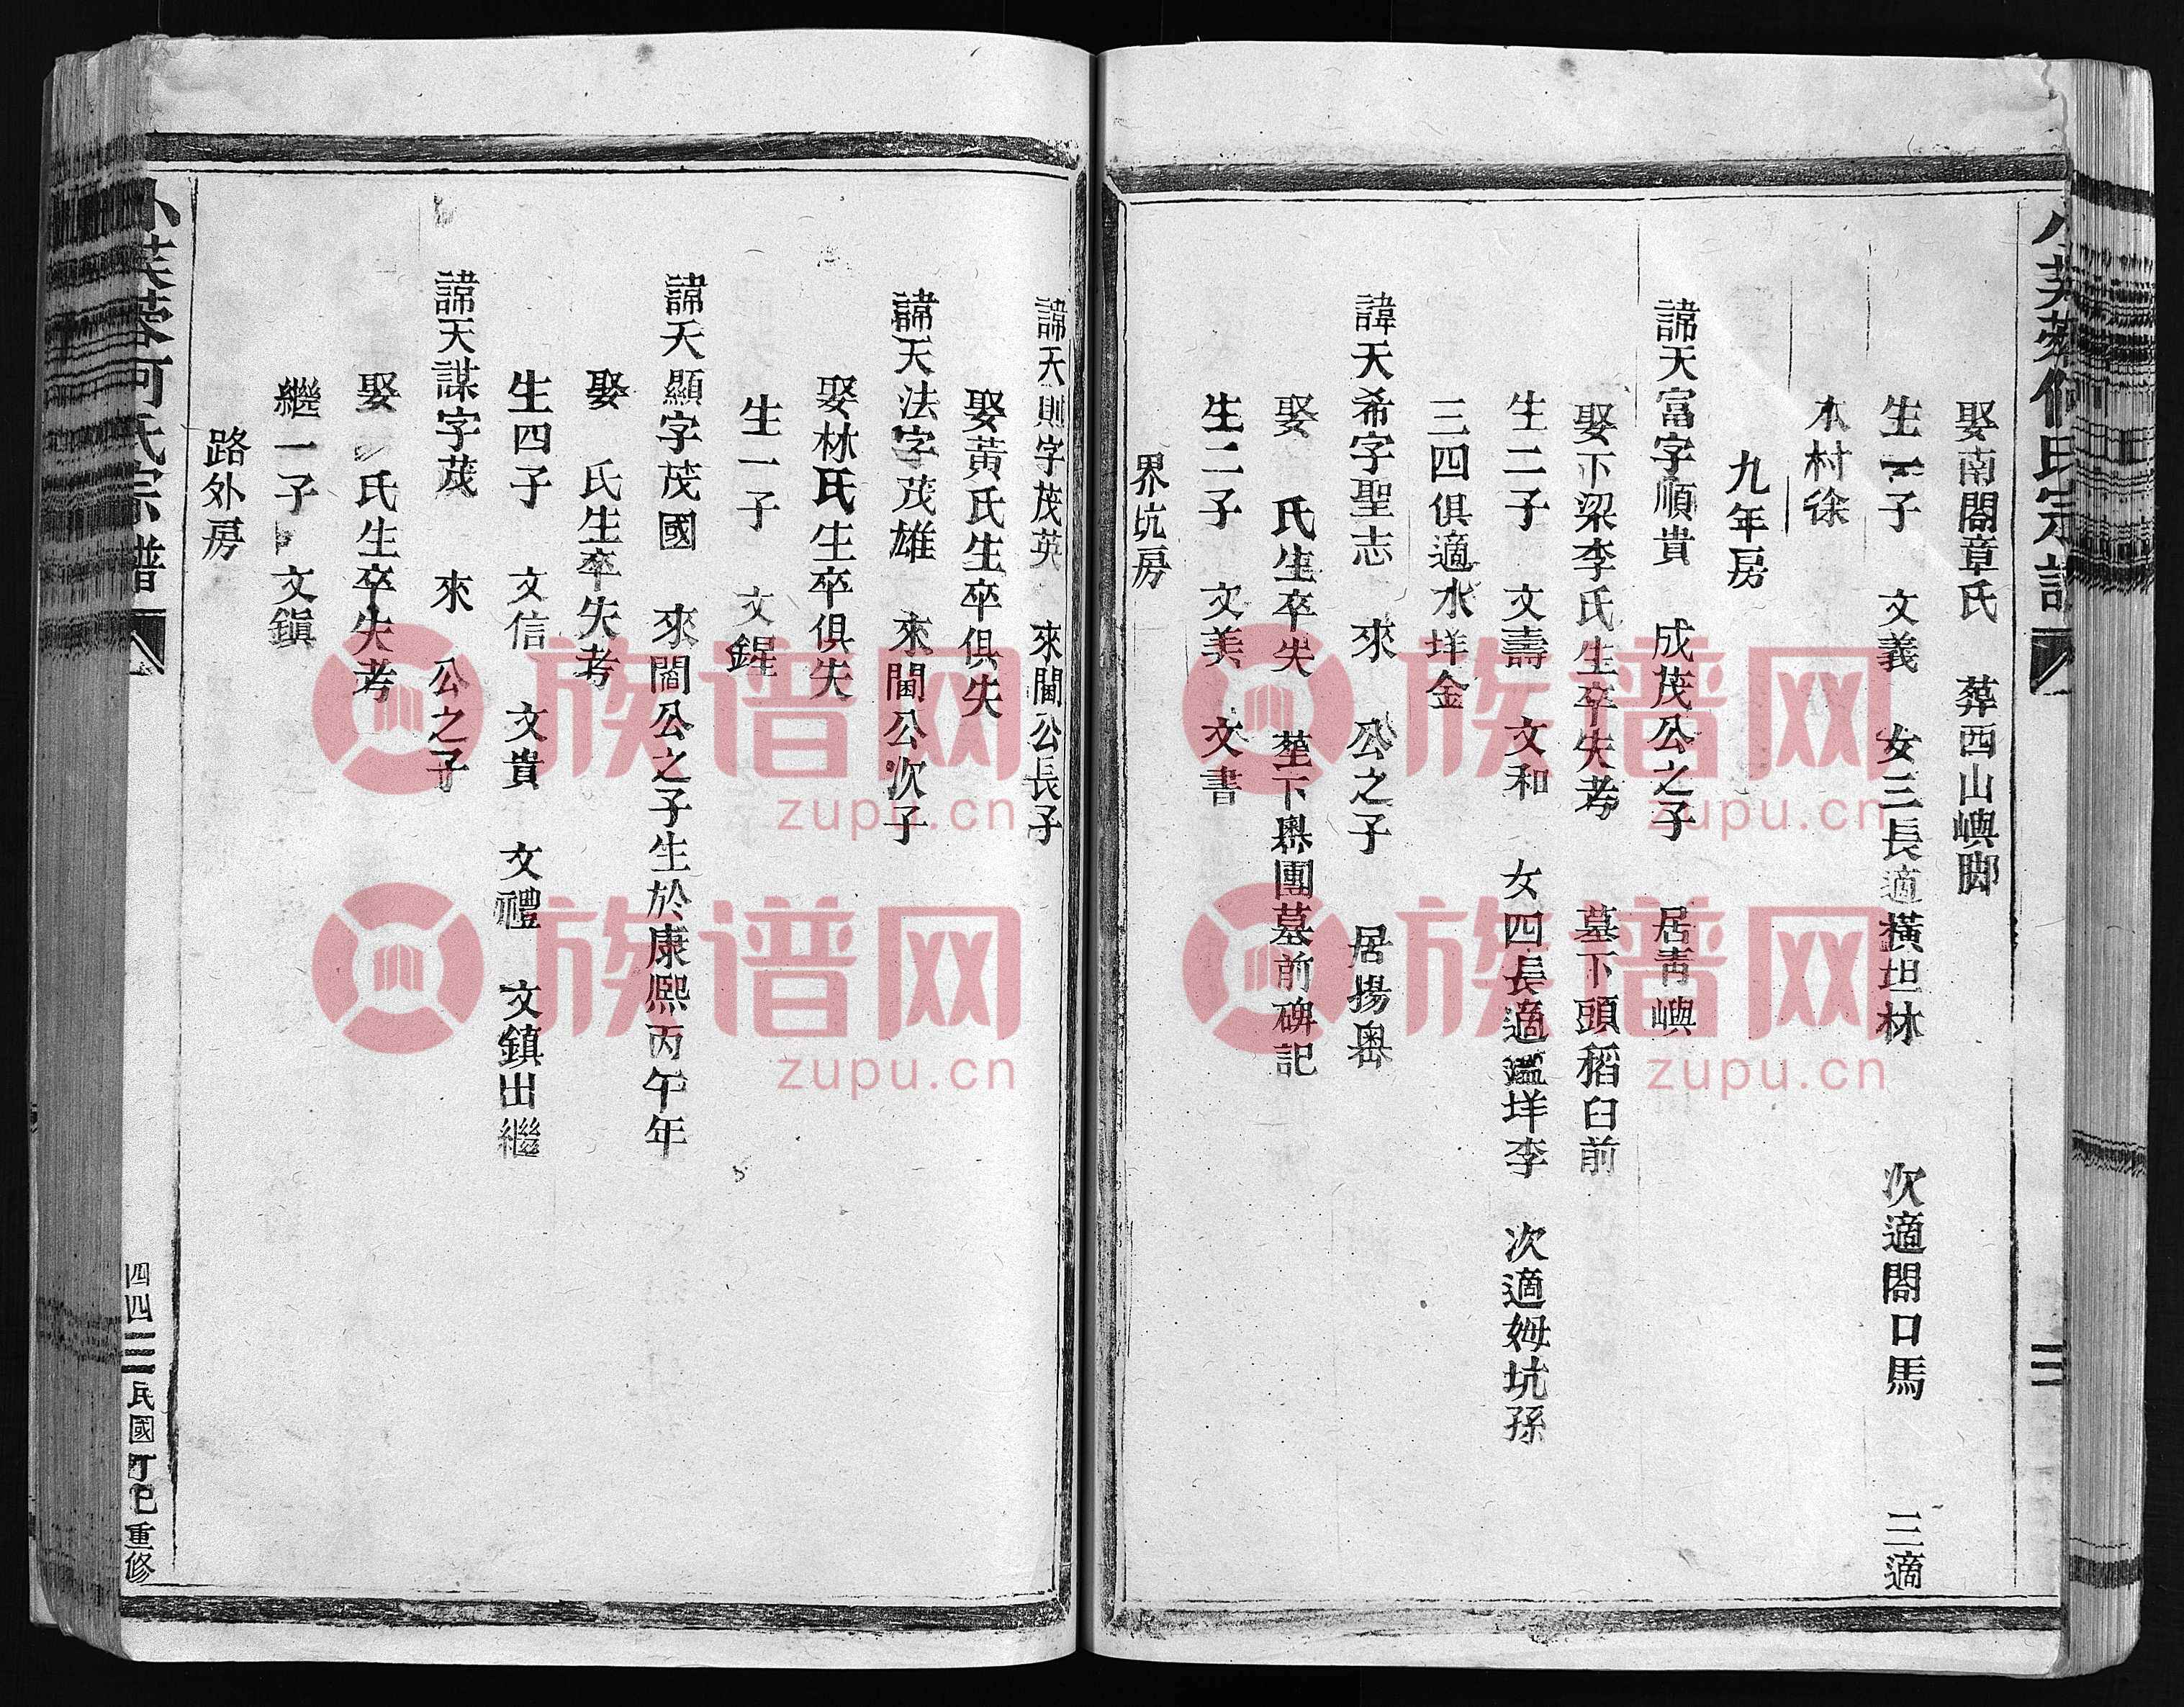 娶南閣章氏　葬西山嶼脚
生一子　文義　女三長適橫坦林　次適閣口馬　三適
本村徐
九年房
諱天富字順貴　成茂公之子　居青嶼
娶下梁李氏生卒失考　墓下頭稻臼前
生二子　文壽　文和　女四長適㵎垟李　次適姆坑孫
三四俱適水垟金
諱天希字聖志　來　公之子　居揚奧
娶　氏生卒失　塟下奧團墓前碑記
生二子　文美　文書
界坑房
諱天則字茂英　來閫公長子
娶黃氏生卒俱失
諱天法字茂雄　來閫公次子
娶林氏生卒俱失
生一子　文鍟
諱天顯字茂國　來閶公之子生於康熙丙午年
娶　氏生卒失考
生四子　文信　文貴　文禮　文鎮出繼
諱天謀字茂　來　公之子
娶　氏生卒失考
繼一子　文鎮
路外房
小芙蓉何氏宗譜
四四
民國丁巳重修
族谱网
zupu.cn
族谱网
zupu.cn
族谱网
zupu.cn
族谱网
zupu.cn